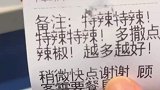 备注：特辣特辣！
特辣特辣！多撒点
辣椒！越多越好！
稍微快点谢谢 顾